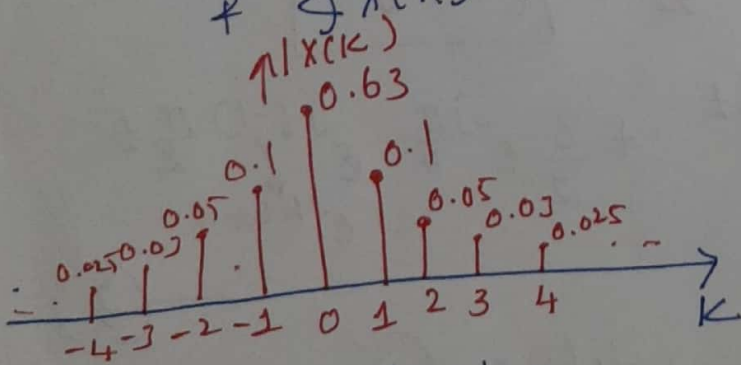 |X(K)
0.63
0.1 0.1
0.05 0.05
0.025 0.03 0.03 0.025
-4 -3 -2 -1 0 1 2 3 4
K